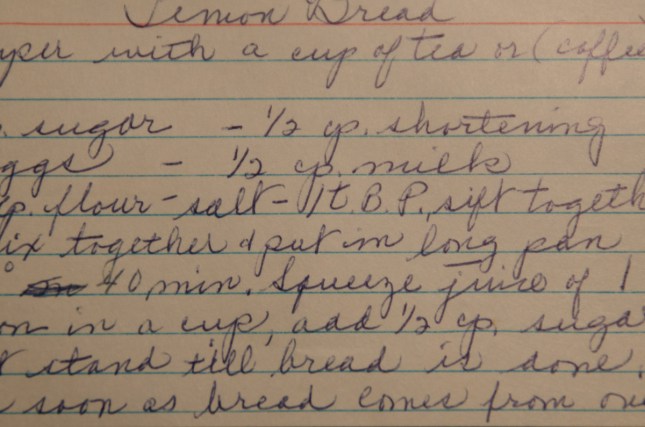 Lemon Bread
uper with a cup of tea or (coffee
. sugar - 1/2 cp. shortening
ggs - 1/2 cp. milk
p. flour - salt - 1 t. B.P., sift togeth
ix together & put in long pan
° 40 min. Squeeze juice of 1
on in a cup, add 1/2 cp. suga
t stand till bread is done.
soon as bread comes from ove